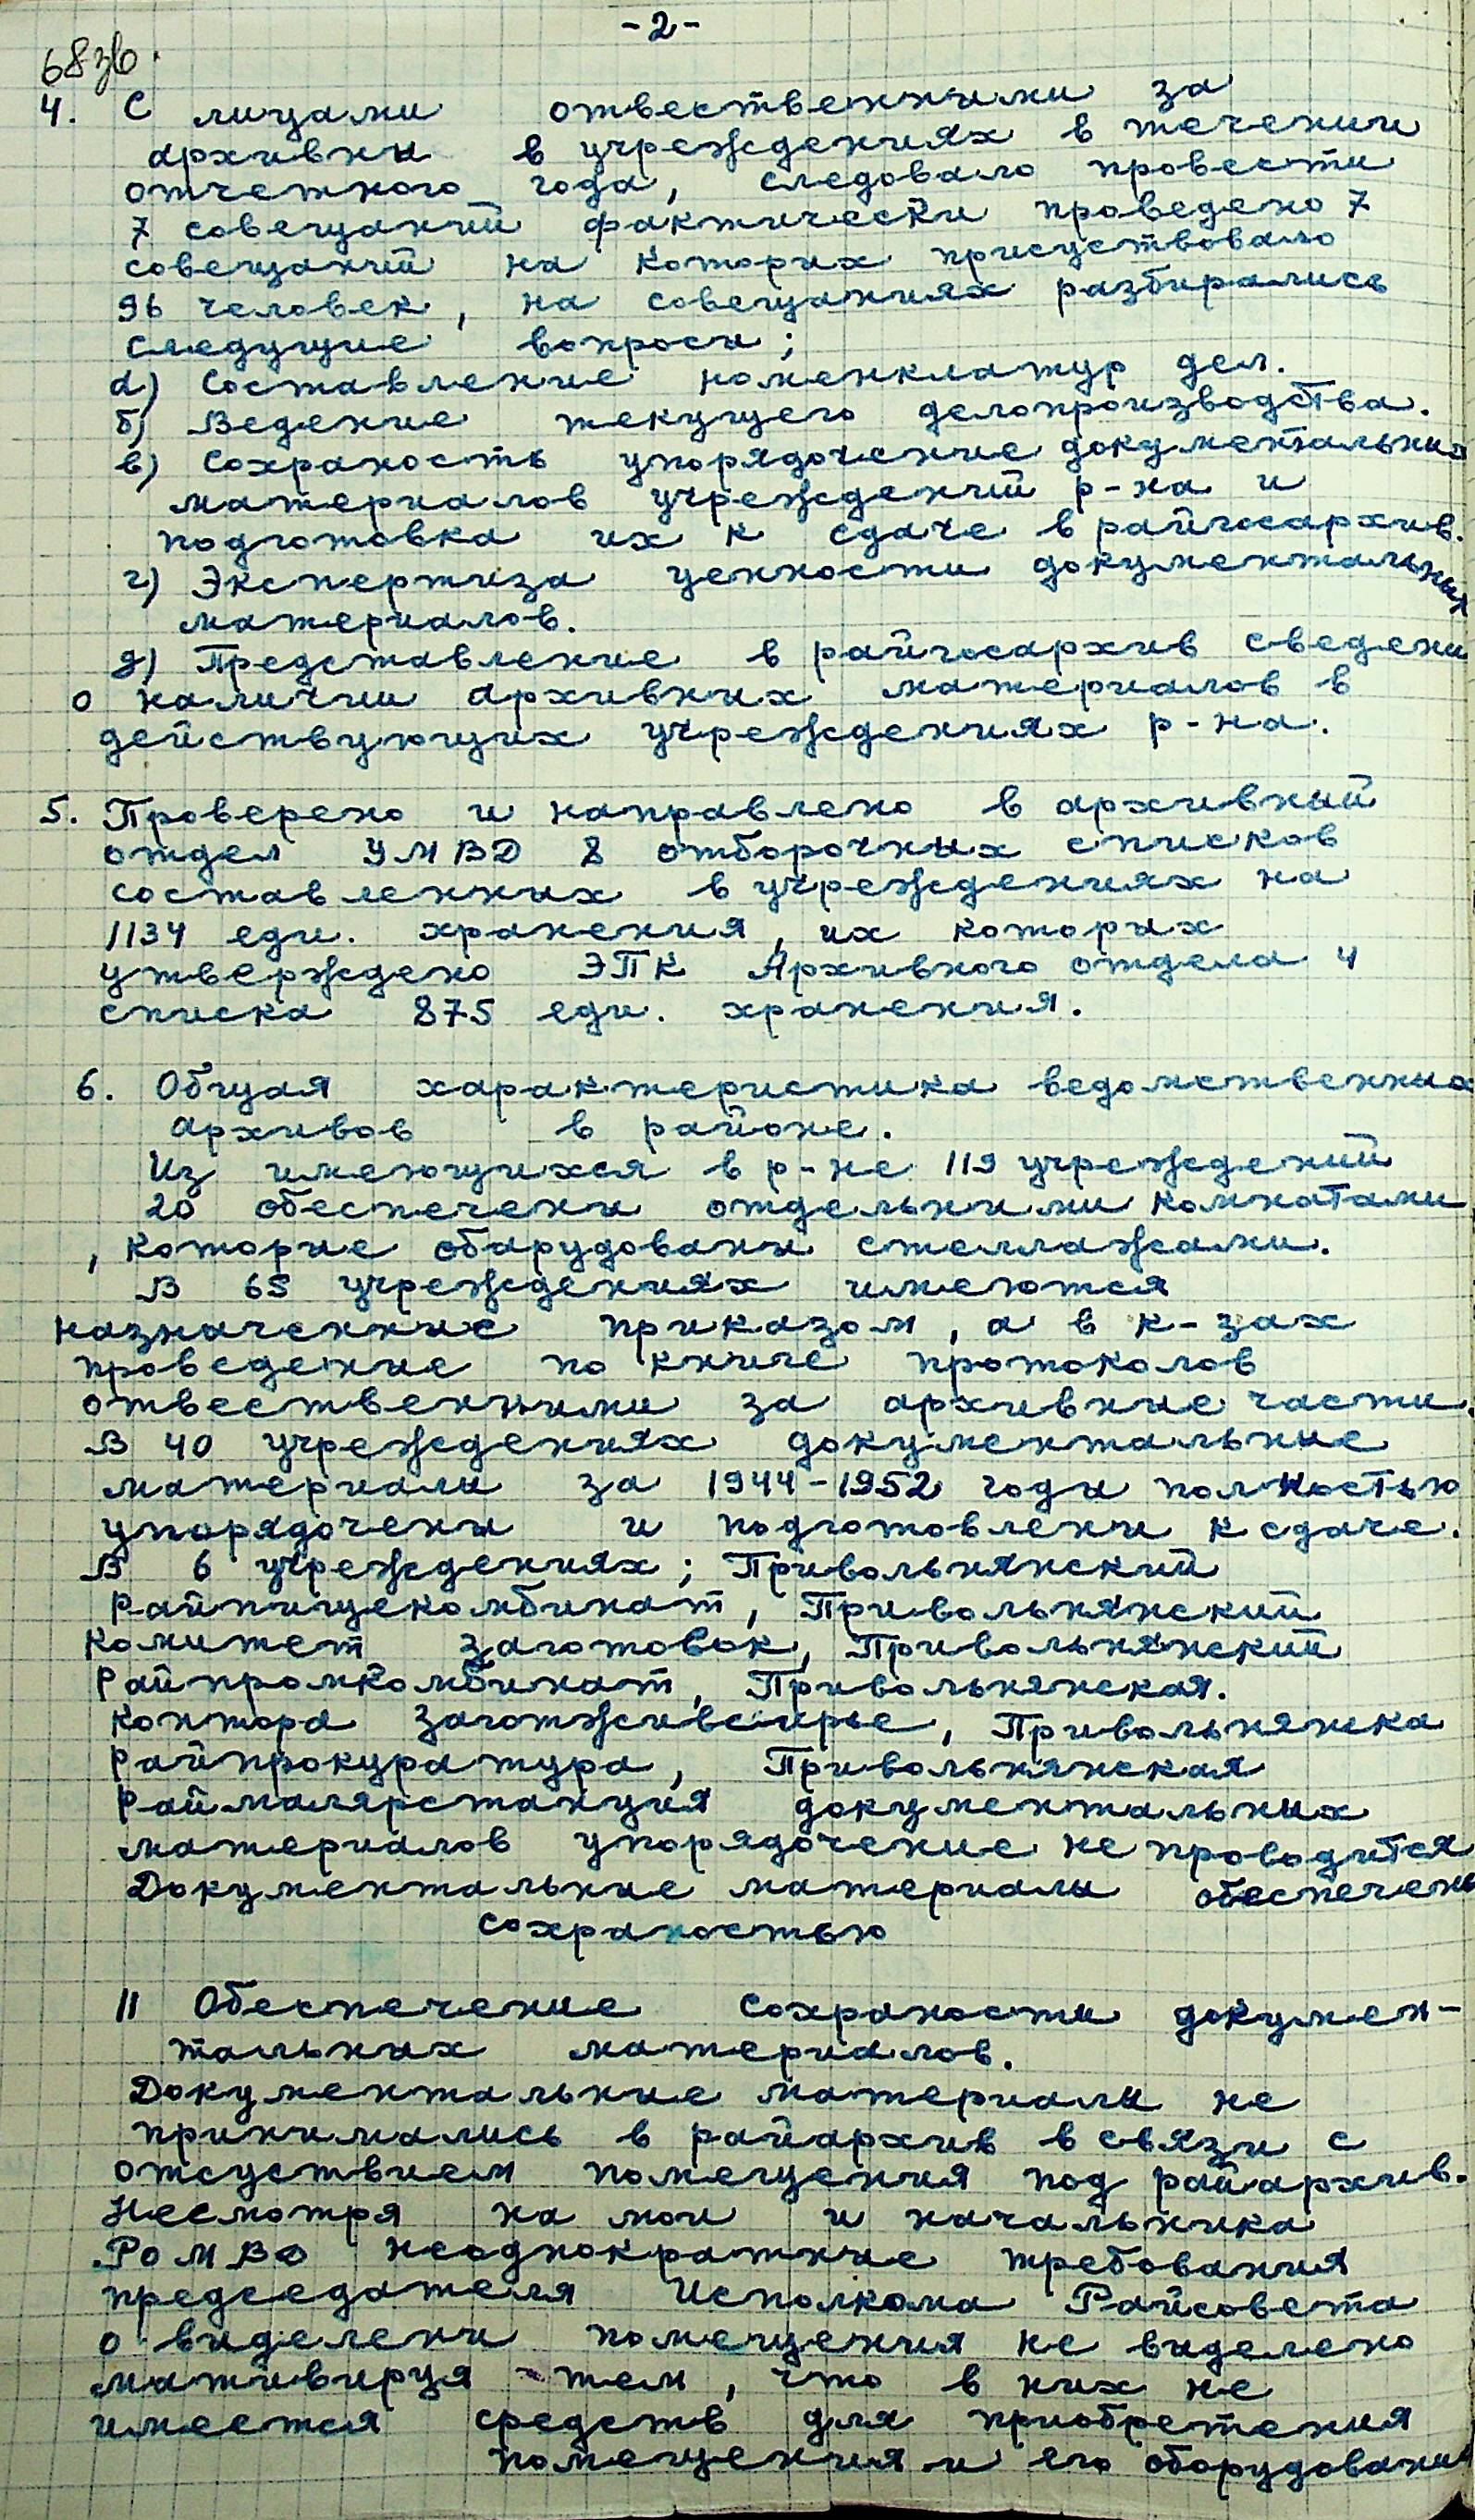 -2-
68зв.
4. С лицами отвественными за
архивы в учреждениях в течении
отчетного года, следовало провести
7 совещаний фактически проведено 7
совещаний на которых присуствовало
96 человек, на совещаниях разбирались
следущие вопросы;
а) Составление номенклатур дел.
б) Ведение текущего делопроизводства.
в) Сохраность упорядочение документальных
материалов учреждений р-на и
подготовка их к сдаче в райгосархив.
г) Экспертиза ценности документальных
материалов.
д) Представление в райгосархив сведени
о наличии архивных материалов в
действующих учреждениях р-на.
5. Проверено и направлено в архивный
отдел УМВД 8 отборочных списков
составленных в учреждениях на
1134 еди. хранения, их которых
утверждено ЭПК Архивного отдела 4
списка 875 еди. хранения.
6. Общая характеристика ведомственных
архивов в районе.
Из имеющихся в р-не 119 учреждений
20 обеспечены отдельными комнатами
, которые обарудованы стеллажами.
В 65 учреждениях имеются
назначенные приказом, а в к-зах
проведение по книге протоколов
отвественными за архивные части.
В 40 учреждениях документальные
материалы за 1944-1952 годы полностью
упорядочены и подготовлены к сдаче.
В 6 учреждениях; Привольнянский
Райпищекомбинат, Привольнянский
комитет заготовок, Привольнянский
Райпромкомбинат, Привольнянская.
контора заготживсырье, Привольнянска
Райпрокуратура, Привольнянская
Раймалярстанция документальных
материалов упорядочение не проводится
Документальные материалы обеспечены
сохраностью
II Обеспечение сохраности докумен-
тальных материалов.
Документальные материалы не
принимались в райархив в связи с
отсуствием помещения под райархив.
Несмотря на мои и начальника
РОМВД неоднократные требования
председателя Исполкома Райсовета
о выделены помещения не выделено
мативируя тем, что в них не
имеется средств для приобретения
помещения и его оборудовани